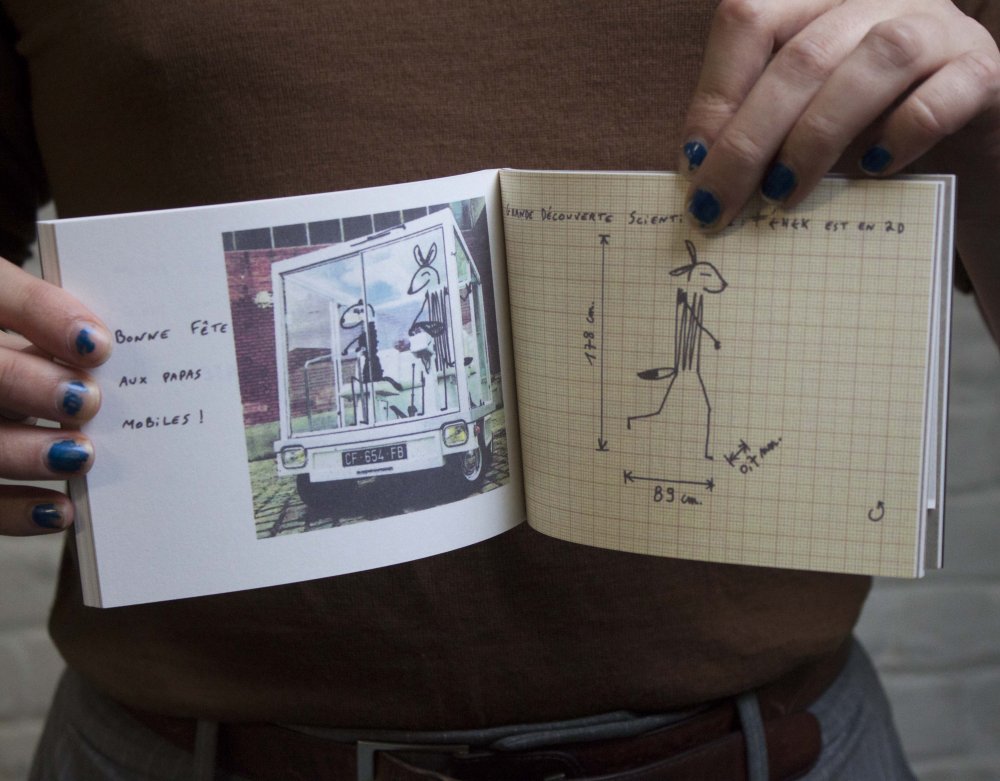 BONNE FÊTE
AUX PAPAS
MOBILES !
CF-654-FB
GRANDE DÉCOUVERTE SCIENTI EST EN 2D
178 cm.
0,7 mm.
89 cm.